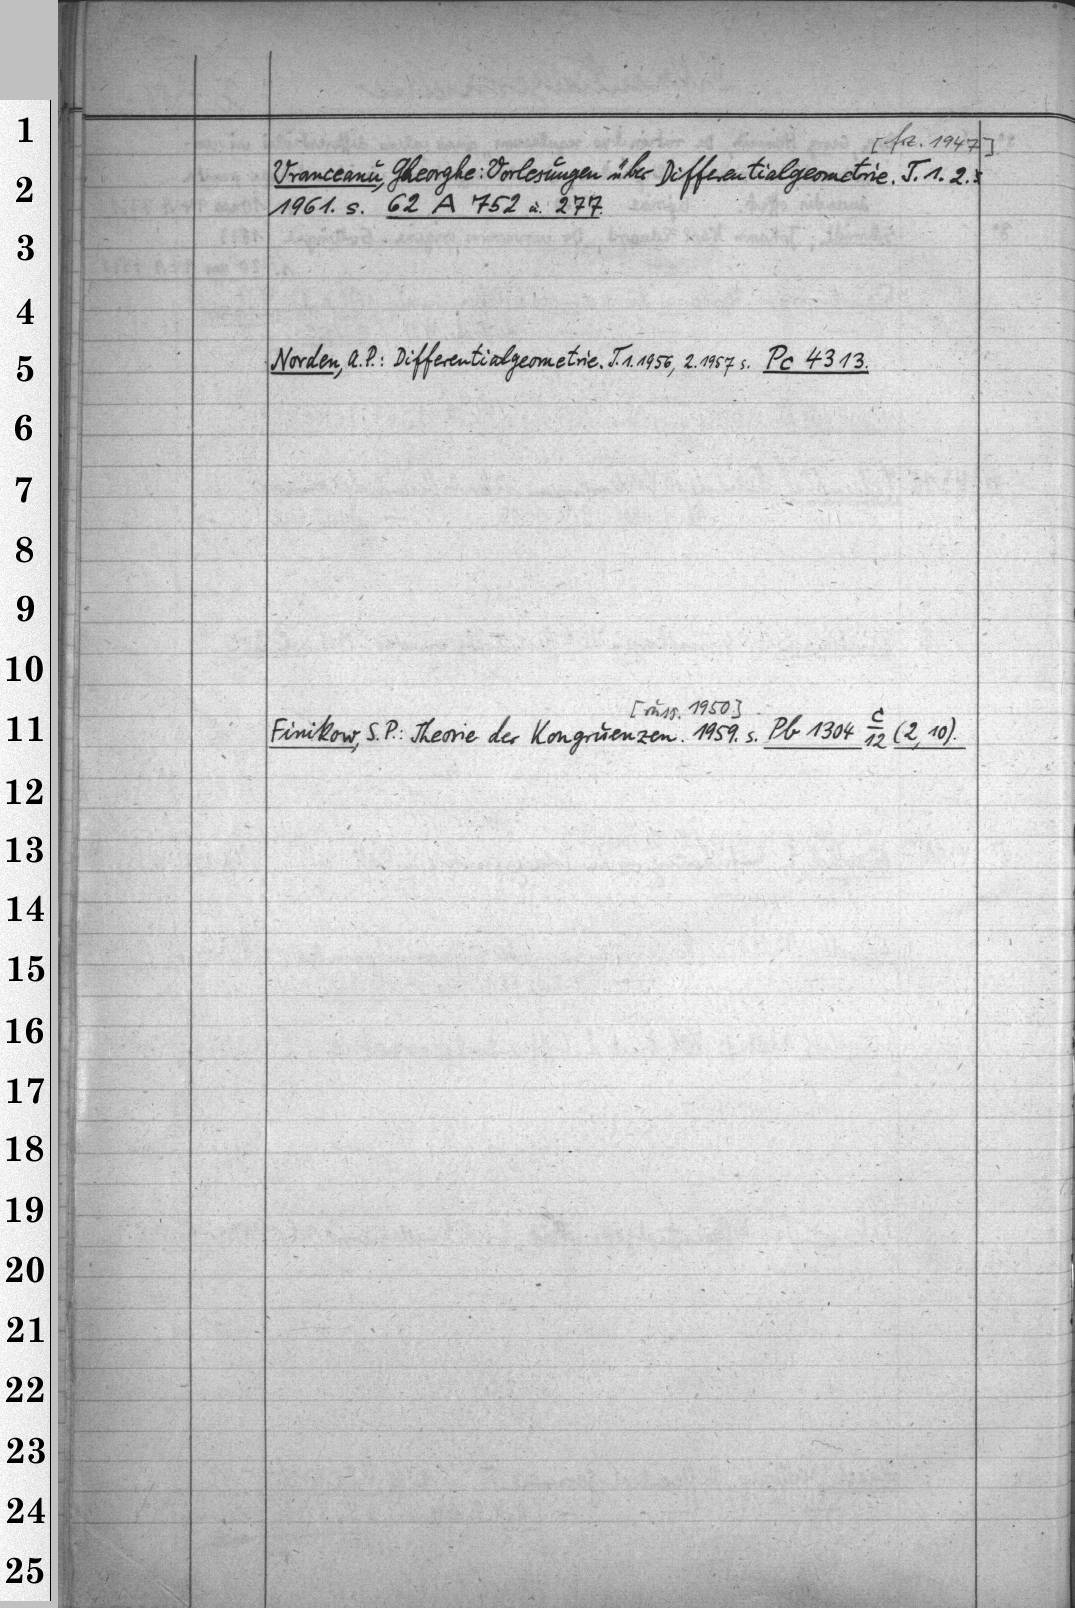 1
[frz. 1947]
2
Vranceanu, Gheorghe: Vorlesungen über Differentialgeometrie. T. 1. 2.:
1961. s. 62 A 752 u. 277.
3
4
5
Norden, A.P.: Differentialgeometrie. T. 1. 1956, 2. 1957 s. Pc 4313.
6
7
8
9
10
[russ. 1950]
11
Finikow, S.P.: Theorie der Kongruenzen. 1959. s. Pb 1304 C/12 (2, 10).
12
13
14
15
16
17
18
19
20
21
22
23
24
25